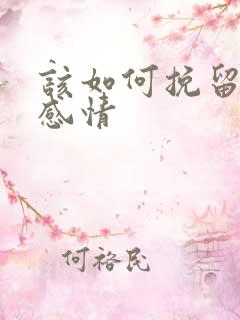 該如何挽留
感情
何裕民